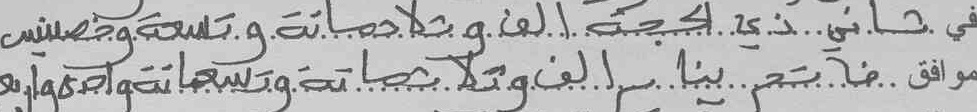 في ثاني ذي الحجة الف وثلاثمائة وتسعة وخمسين
موافق فاتح يناير الف وتسعمائة واحد واربعين